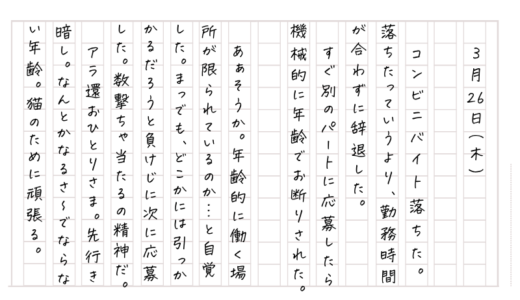 3月26日（木）
コンビニバイト落ちた。
落ちたっていうより、勤務時間
が合わずに辞退した。
すぐ別のパートに応募したら
機械的に年齢でお断りされた。
ああそうか。年齢的に働く場
所が限られているのか…と自覚
した。まっでも、どこかには引っか
かるだろうと負けじに次に応募
した。数撃ちゃ当たるの精神だ。
アラ還おひとりさま。先行き
暗し。なんとかなるさ〜でならな
い年齢。猫のために頑張る。